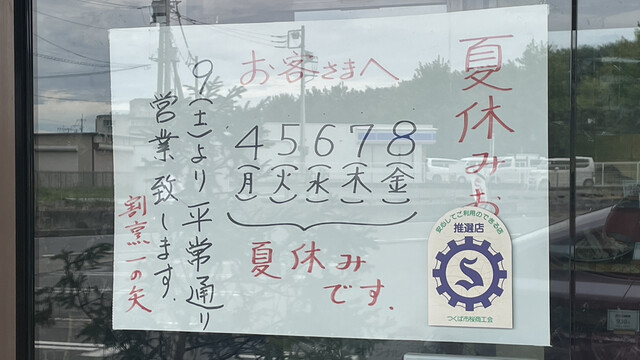 夏休みお
お客さまへ
4 5 6 7 8
(月) (火) (水) (木) (金)
夏休み
です.
9(土)より平常通り
営業致します.
割烹一の矢
安心してご利用のできる店
推選店
S
つくば市桜商工会